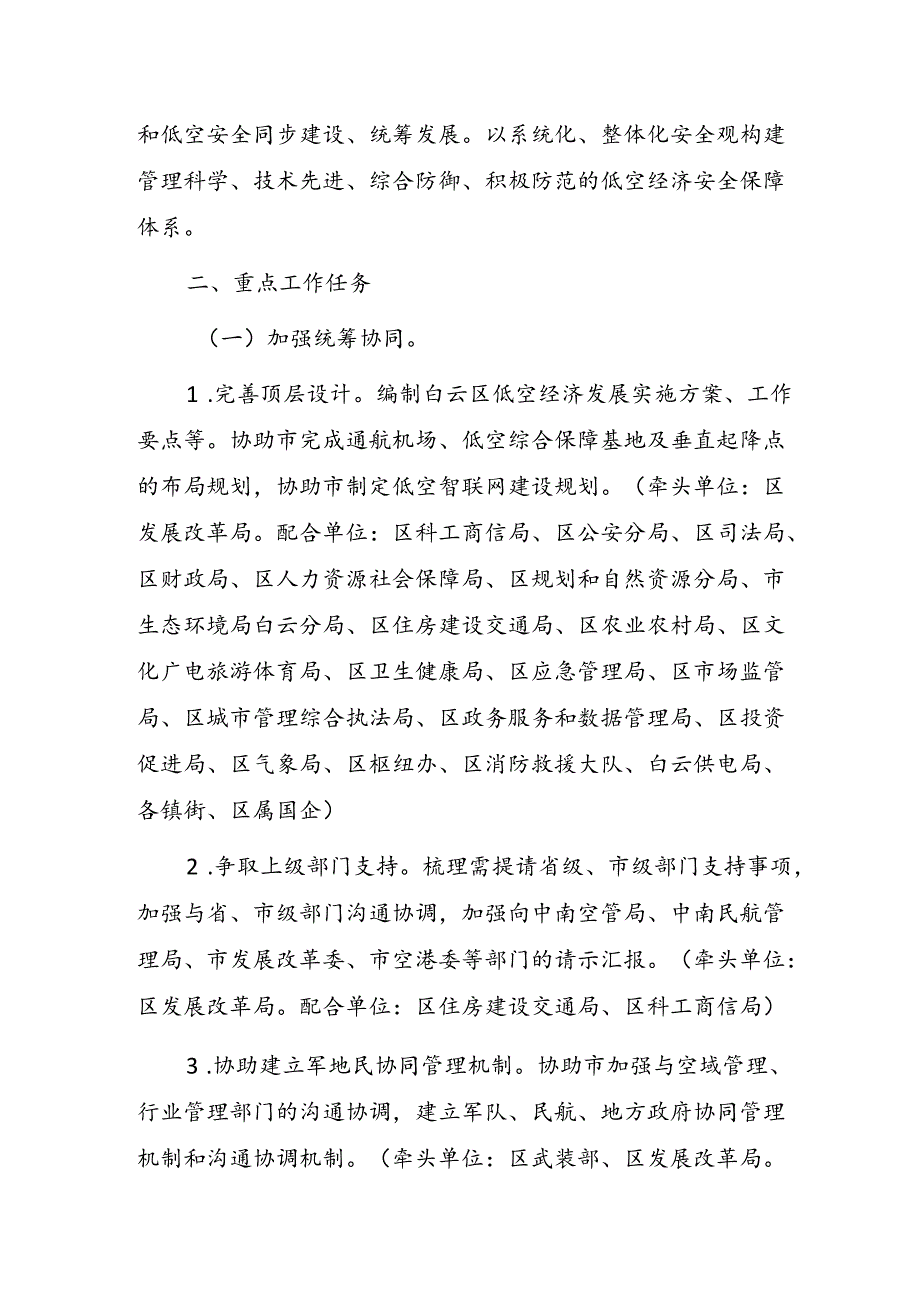 和低空安全同步建设、统筹发展。以系统化、整体化安全观构建
管理科学、技术先进、综合防御、积极防范的低空经济安全保障
体系。
二、重点工作任务
（一）加强统筹协同。
1 .完善顶层设计。编制白云区低空经济发展实施方案、工作
要点等。协助市完成通航机场、低空综合保障基地及垂直起降点
的布局规划，协助市制定低空智联网建设规划。（牵头单位：区
发展改革局。配合单位：区科工商信局、区公安分局、区司法局、
区财政局、区人力资源社会保障局、区规划和自然资源分局、市
生态环境局白云分局、区住房建设交通局、区农业农村局、区文
化广电旅游体育局、区卫生健康局、区应急管理局、区市场监管
局、区城市管理综合执法局、区政务服务和数据管理局、区投资
促进局、区气象局、区枢纽办、区消防救援大队、白云供电局、
各镇街、区属国企）
2 .争取上级部门支持。梳理需提请省级、市级部门支持事项，
加强与省、市级部门沟通协调，加强向中南空管局、中南民航管
理局、市发展改革委、市空港委等部门的请示汇报。（牵头单位：
区发展改革局。配合单位：区住房建设交通局、区科工商信局）
3 .协助建立军地民协同管理机制。协助市加强与空域管理、
行业管理部门的沟通协调，建立军队、民航、地方政府协同管理
机制和沟通协调机制。（牵头单位：区武装部、区发展改革局。